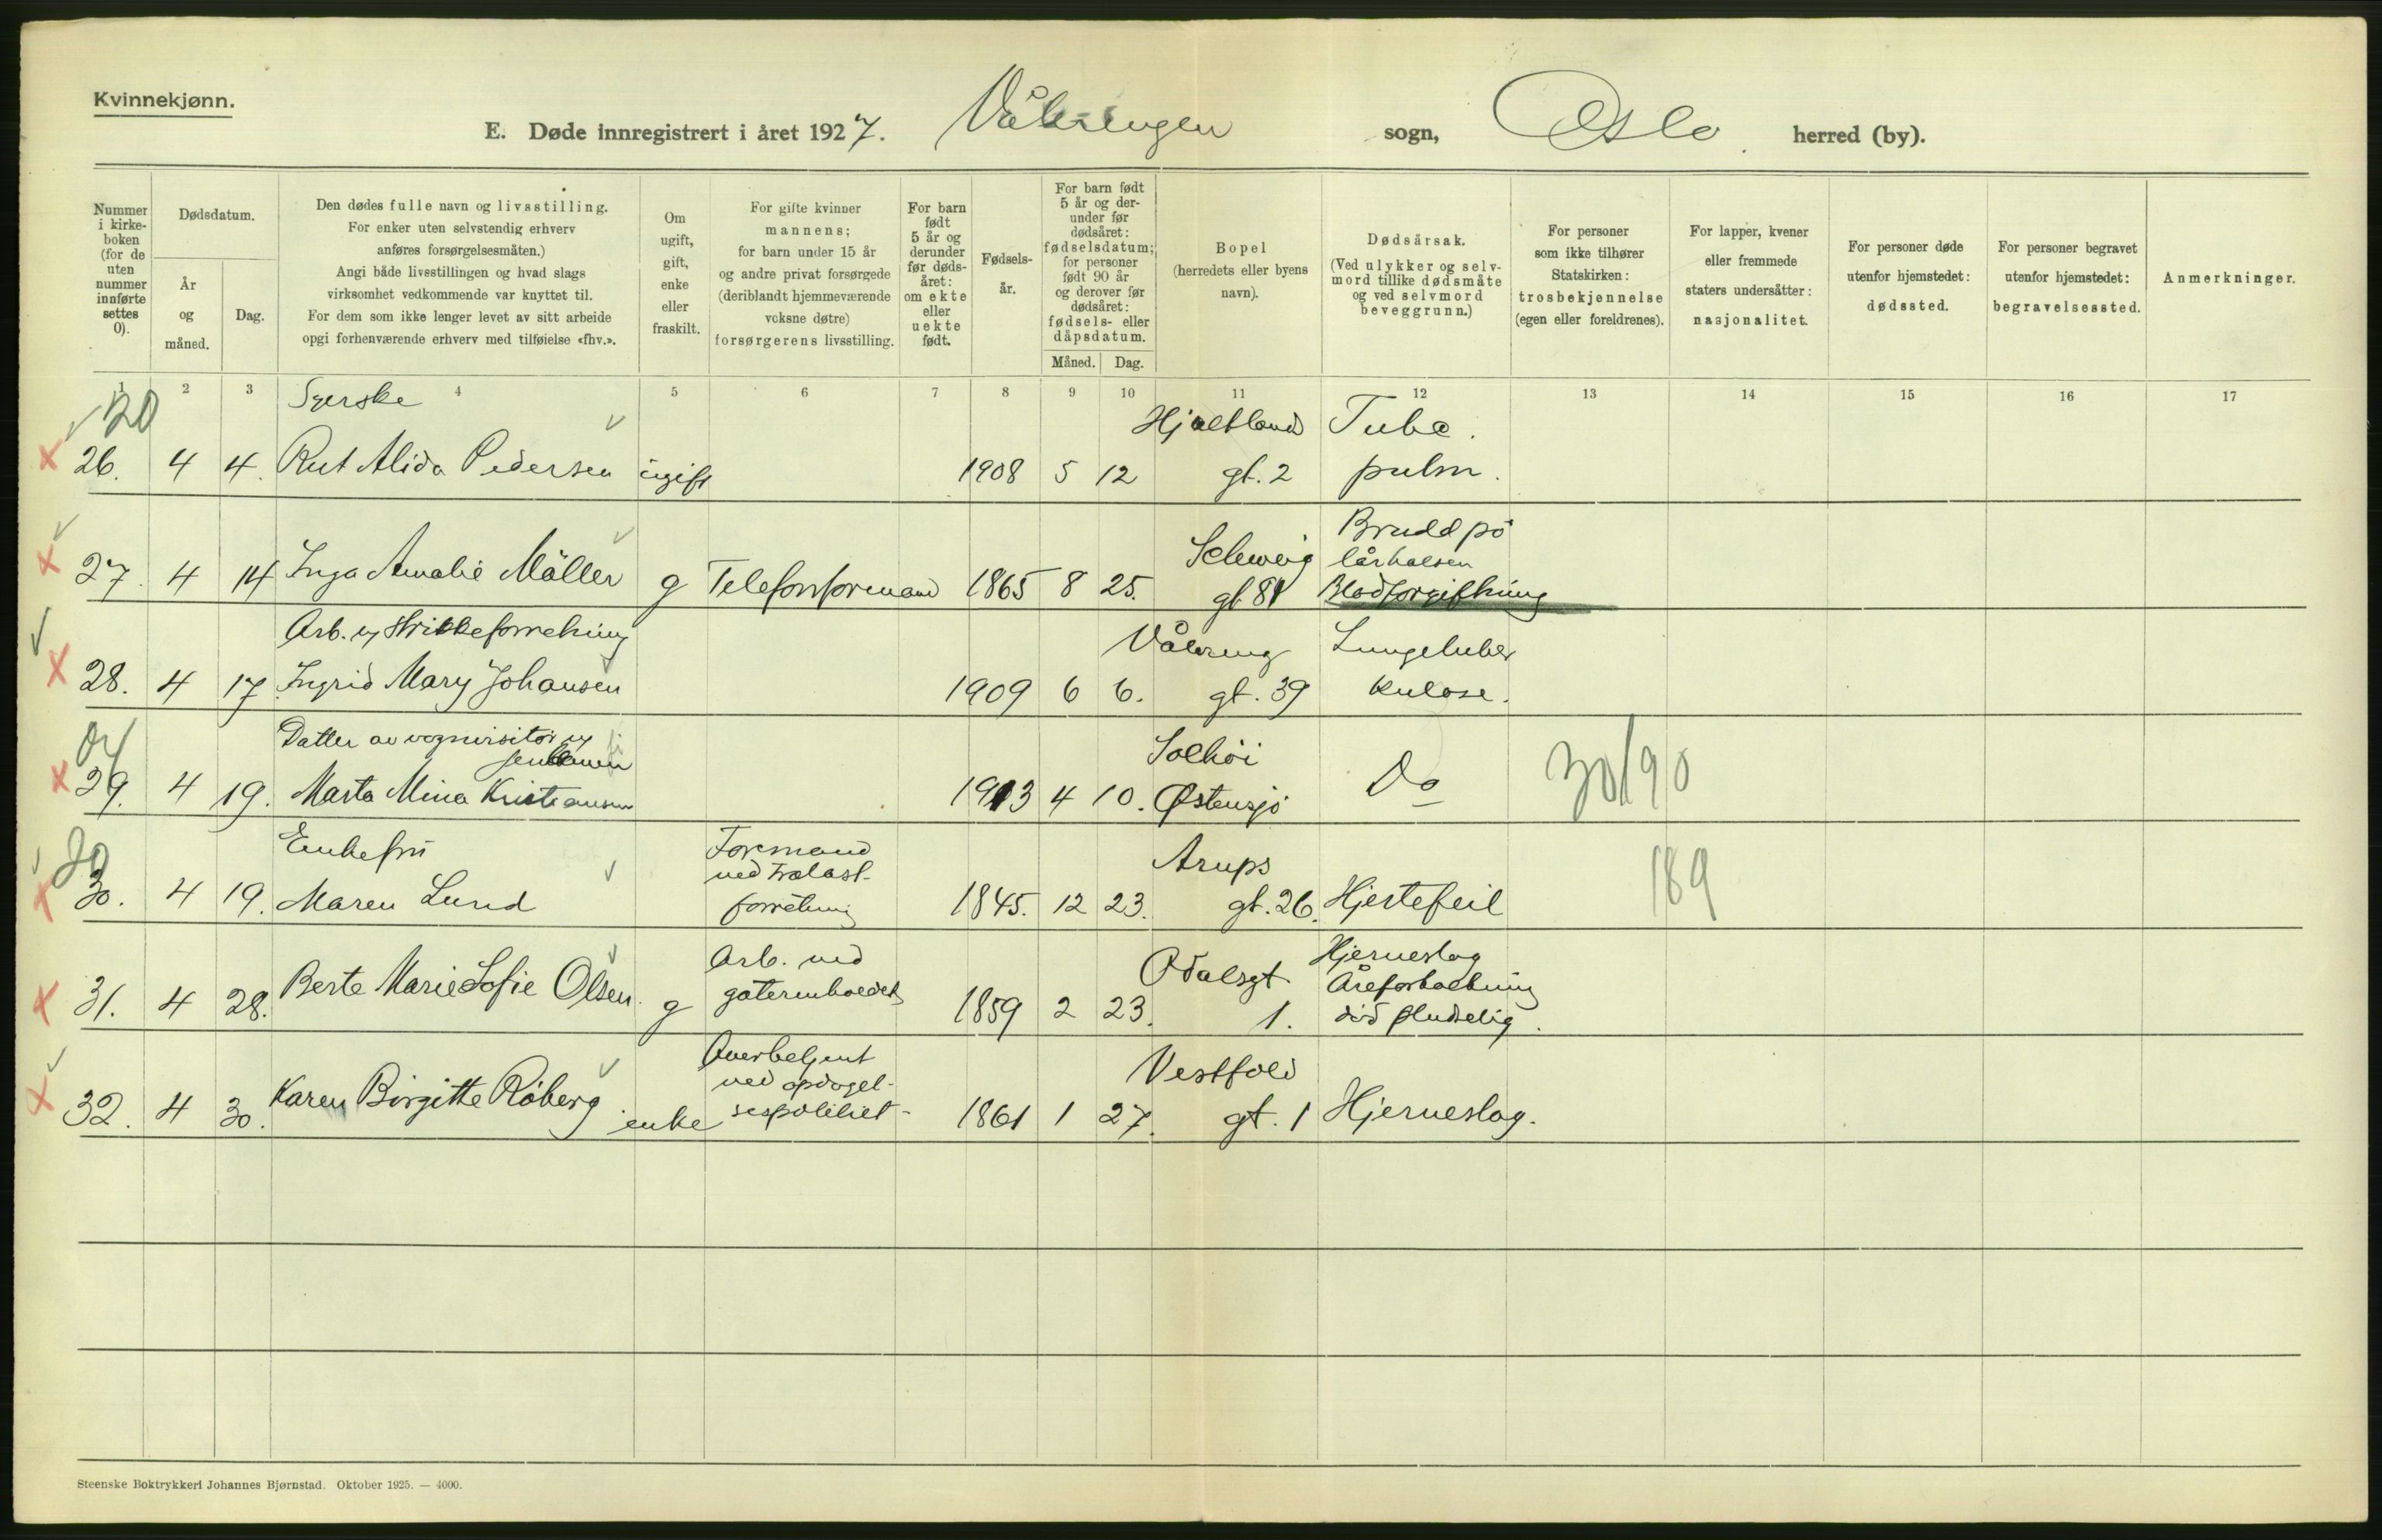 Kvinnekjønn.
E. Døde innregistrert i året 1927. Vålerengen sogn, Oslo herred (by).
Nummer i kirke-boken (for de uten nummer innførte settes 0).
Dødsdatum.
År og måned.
Dag.
Den dødes fulle navn og livsstilling.
For enker uten selvstendig erhverv
anføres forsørgelsesmåten.)
Angi både livsstillingen og hvad slags
virksomhet vedkommende var knyttet til.
For dem som ikke lenger levet av sitt arbeide
opgi forhenværende erhverv med tilføielse «fhv.».
Om ugift, gift, enke eller fraskilt.
For gifte kvinner
mannens;
for barn under 15 år
og andre privat forsørgede
(deriblandt hjemmeværende
voksne døtre)
forsørgerens livsstilling.
For barn født 5 år og derunder før døds-året: om ekte eller uekte født.
Fødsels-år.
For barn født 5 år og der-under før dødsåret: fødselsdatum; for personer født 90 år og derover før dødsåret: fødsels- eller dåpsdatum.
Måned. Dag.
Bopel
(herredets eller byens
navn).
Dødsårsak.
(Ved ulykker og selv-
mord tillike dødsmåte
og ved selvmord
beveggrunn.)
For personer
som ikke tilhører
Statskirken:
trosbekjennelse
(egen eller foreldrenes).
For lapper, kvener
eller fremmede
staters undersåtter:
nasjonalitet.
For personer døde
utenfor hjemstedet:
dødssted.
For personer begravet
utenfor hjemstedet:
begravelsessted.
Anmerkninger.
1 2 3 4 5 6 7 8 9 10 11 12 13 14 15 16 17
Syerske Hjaltlands Tube.
26. 4 4. Rut Alida Pedersen ugift 1908 5 12 gt. 2 pulm.
Brudd på
Schweig lårhalsen
27. 4 14 Inga Amalie Möller g Telefonformand 1865 8 25. gt 81 Blodforgiftning
Arb. v strikkeforretning Vålereng Lungetuber
28. 4 17 Ingrid Mary Johansen 1909 6 6. gt. 39 kulose.
Datter av vognvisitør
Solhöi
29. 4 19. Marta Mina Kristiansen 1913 4 10. Østensjö Do 30/90
Enkefru Formand Arups
ved trælast-
30. 4 19. Maren Lund forretning 1845. 12 23. gt. 26. Hjertefeil 189
Arb. ved Odalsgt. Hjerneslag
Åreforkalkning
31. 4 28. Berte Marie Sofie Olsen g gaterenholdet 1859 2 23. 1. död pludselig.
Overbetjent Vestfold
ved opdagel-
32. 4 30. Karen Birgitte Röberg enke sespolitiet 1861 1 27. gt. 1 Hjerneslag.
Steenske Boktrykkeri Johannes Bjørnstad. Oktober 1925. — 4000.